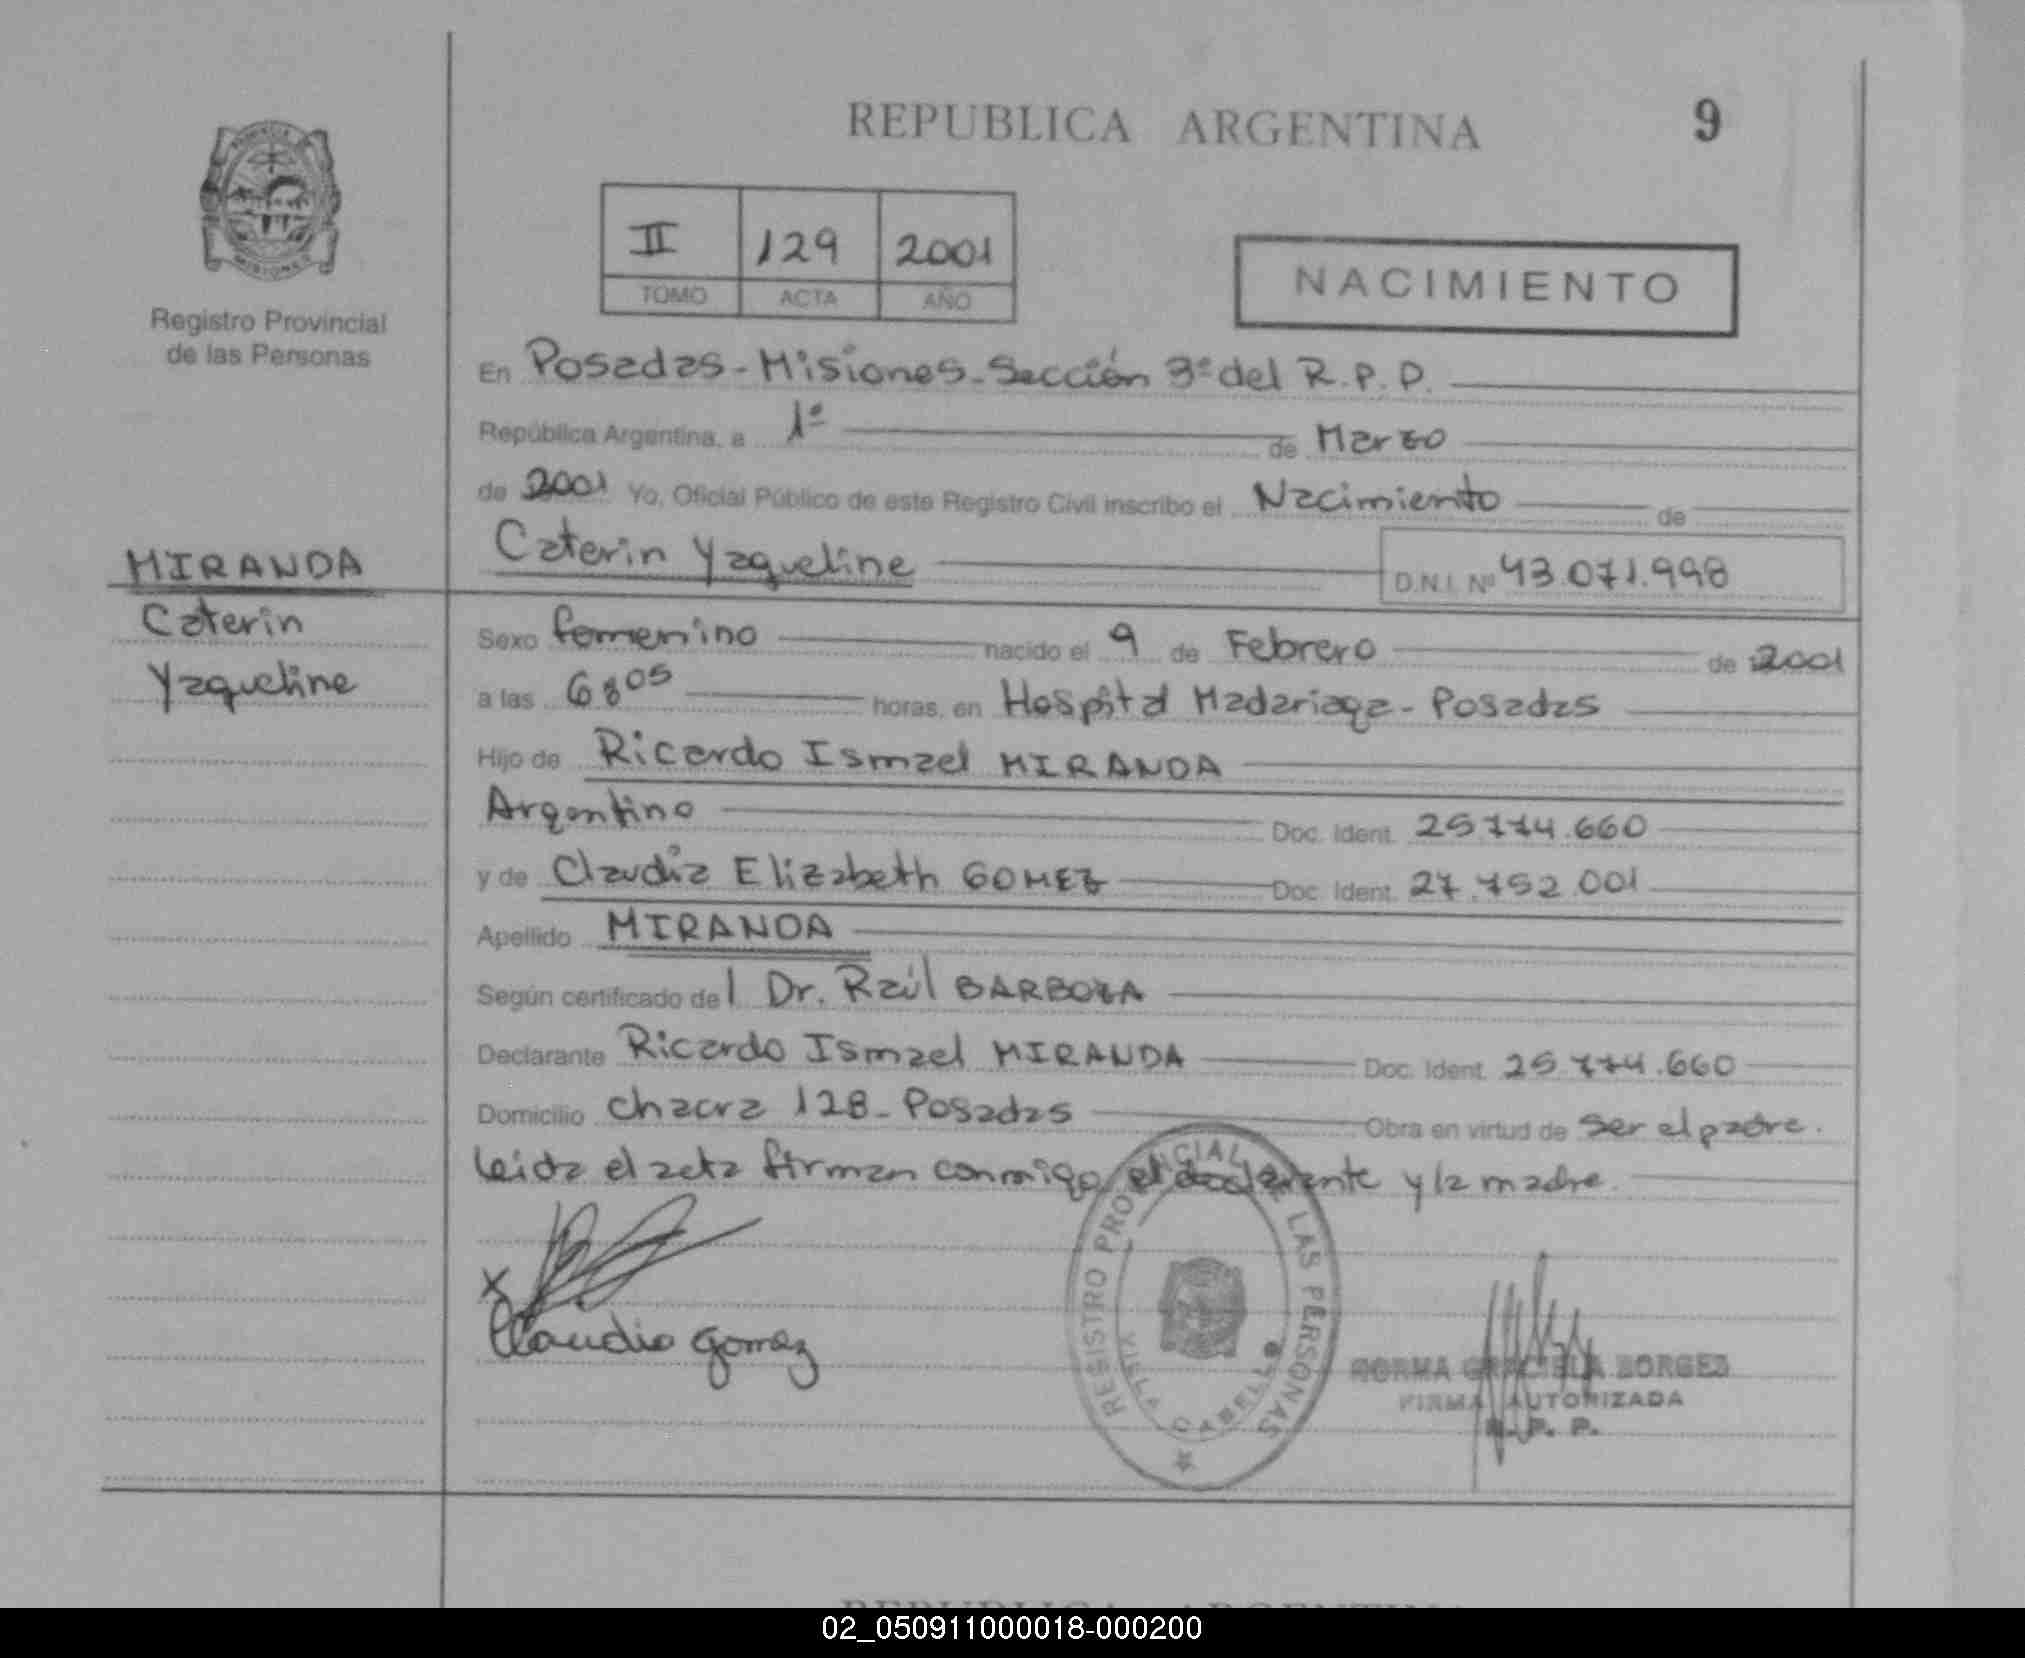 REPUBLICA ARGENTINA
9
PROVINCIA
MISIONES
Registro Provincial
de las Personas
II 129 2001
TOMO ACTA AÑO
NACIMIENTO
En Posadas - Misiones - Sección 3º del R.P.P.
República Argentina, a 1º de Marzo
de 2001 Yo, Oficial Público de este Registro Civil inscribo el Nacimiento de
Caterin Yaqueline D.N.I. Nº 43.071.998
MIRANDA
Caterin
Yaqueline
Sexo femenino nacido el 9 de Febrero de 2001
a las 6 05 horas, en Hospital Madariaga - Posadas
Hijo de Ricardo Ismael MIRANDA
Argentino Doc. Ident. 25.774.660
y de Claudia Elizabeth GOMEZ Doc. Ident. 27.752.001
Apellido MIRANDA
Según certificado del Dr. Raúl BARBOZA
Declarante Ricardo Ismael MIRANDA Doc. Ident. 25 774.660
Domicilio chacra 128 - Posadas Obra en virtud de ser el padre.
Leida el acta firman conmigo el declarante y la madre.
X
Claudia Gomez
REGISTRO PROVINCIAL DE LAS PERSONAS
VILLA CABELLO
NORMA GRACIELA BORGES
FIRMA AUTORIZADA
R. P. P.
REPUBLICA ARGENTINA
02_050911000018-000200